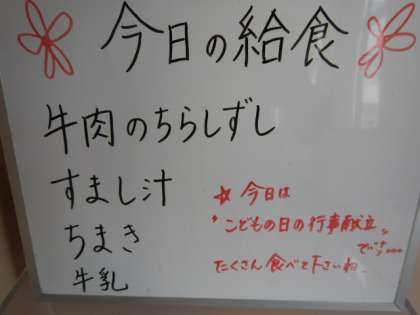 今日の給食
牛肉のちらしずし
すまし汁
ちまき
牛乳
☆今日は
"こどもの日の行事献立"
です。
たくさん食べて下さいね。